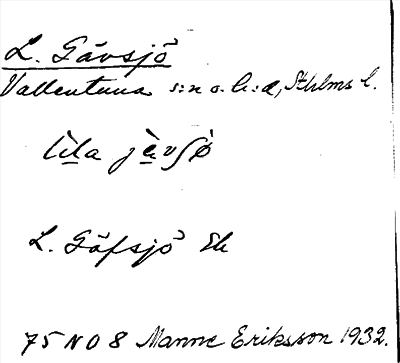 L. Gävsjö
Vallentuna s:n o. h:d, Sthlms l.
lìla jè̱vʃö̀
L. Göfsjö Ek
75 NO 8 Manne Eriksson 1932.